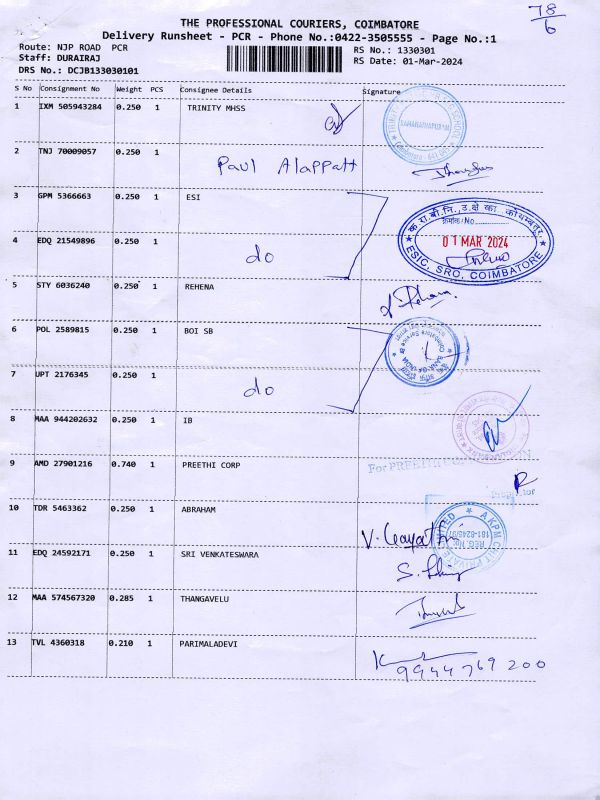 78
6
THE PROFESSIONAL COURIERS, COIMBATORE
Delivery Runsheet - PCR - Phone No.:0422-3505555 - Page No.:1
Route: NJP ROAD PCR
RS No.: 1330301
Staff: DURAIRAJ
RS Date: 01-Mar-2024
DRS No.: DCJB133030101
S No Consignment No Weight PCS Consignee Details Signature
1 IXM 505943284 0.250 1 TRINITY MHSS
2 TNJ 70009057 0.250 1 Paul Alappatt
3 GPM 5366663 0.250 1 ESI
क.रा.बी.नि., उ.क्षे.का., कोयम्बत्तूर.
क्रमांक/No.
01 MAR 2024
ESIC, SRO, COIMBATORE
4 EDQ 21549896 0.250 1 do
5 STY 6036240 0.250 1 REHENA
6 POL 2589815 0.250 1 BOI SB
7 UPT 2176345 0.250 1 do
8 MAA 944202632 0.250 1 IB
9 AMD 27901216 0.740 1 PREETHI CORP
For PREETHI
10 TDR 5463362 0.250 1 ABRAHAM
V. Gayathri
AKPM CHIT PRIVATE LIMITED
11 EDQ 24592171 0.250 1 SRI VENKATESWARA
12 MAA 574567320 0.285 1 THANGAVELU
13 TVL 4360318 0.210 1 PARIMALADEVI
9944769200